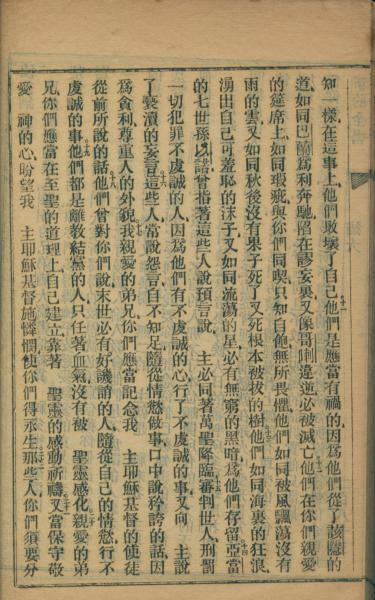 知一樣在這事上他們敗壞了自己他們是應當有禍的因爲他們從了該隱的
道如同巴蘭爲利奔馳陷在謬妄裏又像哥喇違逆必被滅亡他們在你們親愛
的筵席上如同瑕疵與你們同喫只知自飽無所畏懼他們如同被風飄蕩沒有
雨的雲又如同秋後沒有果子死了又死根本被拔的樹他們如同海裏的狂浪
湧出自己可羞恥的沫子又如同流蕩的星必有無窮的黑暗爲他們存留亞當
的七世孫以諾曾指著這些人說預言說 主必同著萬聖降臨審判世人刑罰
一切犯罪不虔誠的人因爲他們有不虔誠的心行了不虔誠的事又向 主說
了褻瀆的妄言這些人常說怨言自不知足隨從情慾做事口中說矜誇的話因
爲貪利尊重人的外貌我親愛的弟兄你們應當記念我 主耶穌基督的使徒
從前所說的話他們曾對你們說末世必有好譏誚的人隨從自己的情慾行不
虔誠的事他們都是離教結黨的人只任著血氣沒有被 聖靈感化我親愛的弟
兄你們應當在至聖的道理上自己建立靠著 聖靈的感動祈禱又當保守敬
愛 神的心盼望我 主耶穌基督施憐憫使你們得永生那些人你們須要分